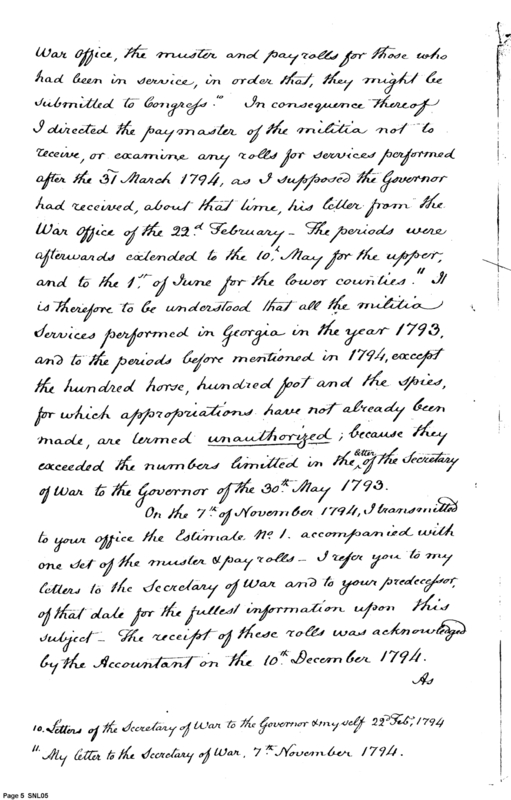 War Office, the muster and payrolls for those who
had been in service, in order that, they might be
submitted to Congress." In consequence thereof
I directed the paymaster of the militia not to
receive, or examine any rolls for services performed
after the 31 March 1794, as I supposed the Governor
had received, about that time, his letter from the
War Office of the 22d February - The periods were
afterwards extended to the 10th May for the upper,
and to the 1st of June for the lower counties." It
is therefore to be understood that all the militia
Services performed in Georgia in the year 1793,
and to the periods before mentioned in 1794, except
the hundred horse, hundred foot and the spies,
for which appropriations have not already been
made, are termed unauthorized; because they
exceeded the numbers limitted in the letter of the Secretary
of War to the Governor of the 30th May 1793.
On the 7th of November 1794, I transmitted
to your office the Estimate No 1. accompanied with
one set of the muster & pay rolls - I refer you to my
letters to the Secretary of War and to your predecessor,
of that date for the fullest information upon this
subject - The receipt of these rolls was acknowledged
by the Accountant on the 10th December 1794.
As
10. Letters of the Secretary of War to the Governor & my self 22d Feby, 1794
11. My letter to the Secretary of War. 7th November 1794.
Page 5 SNL05